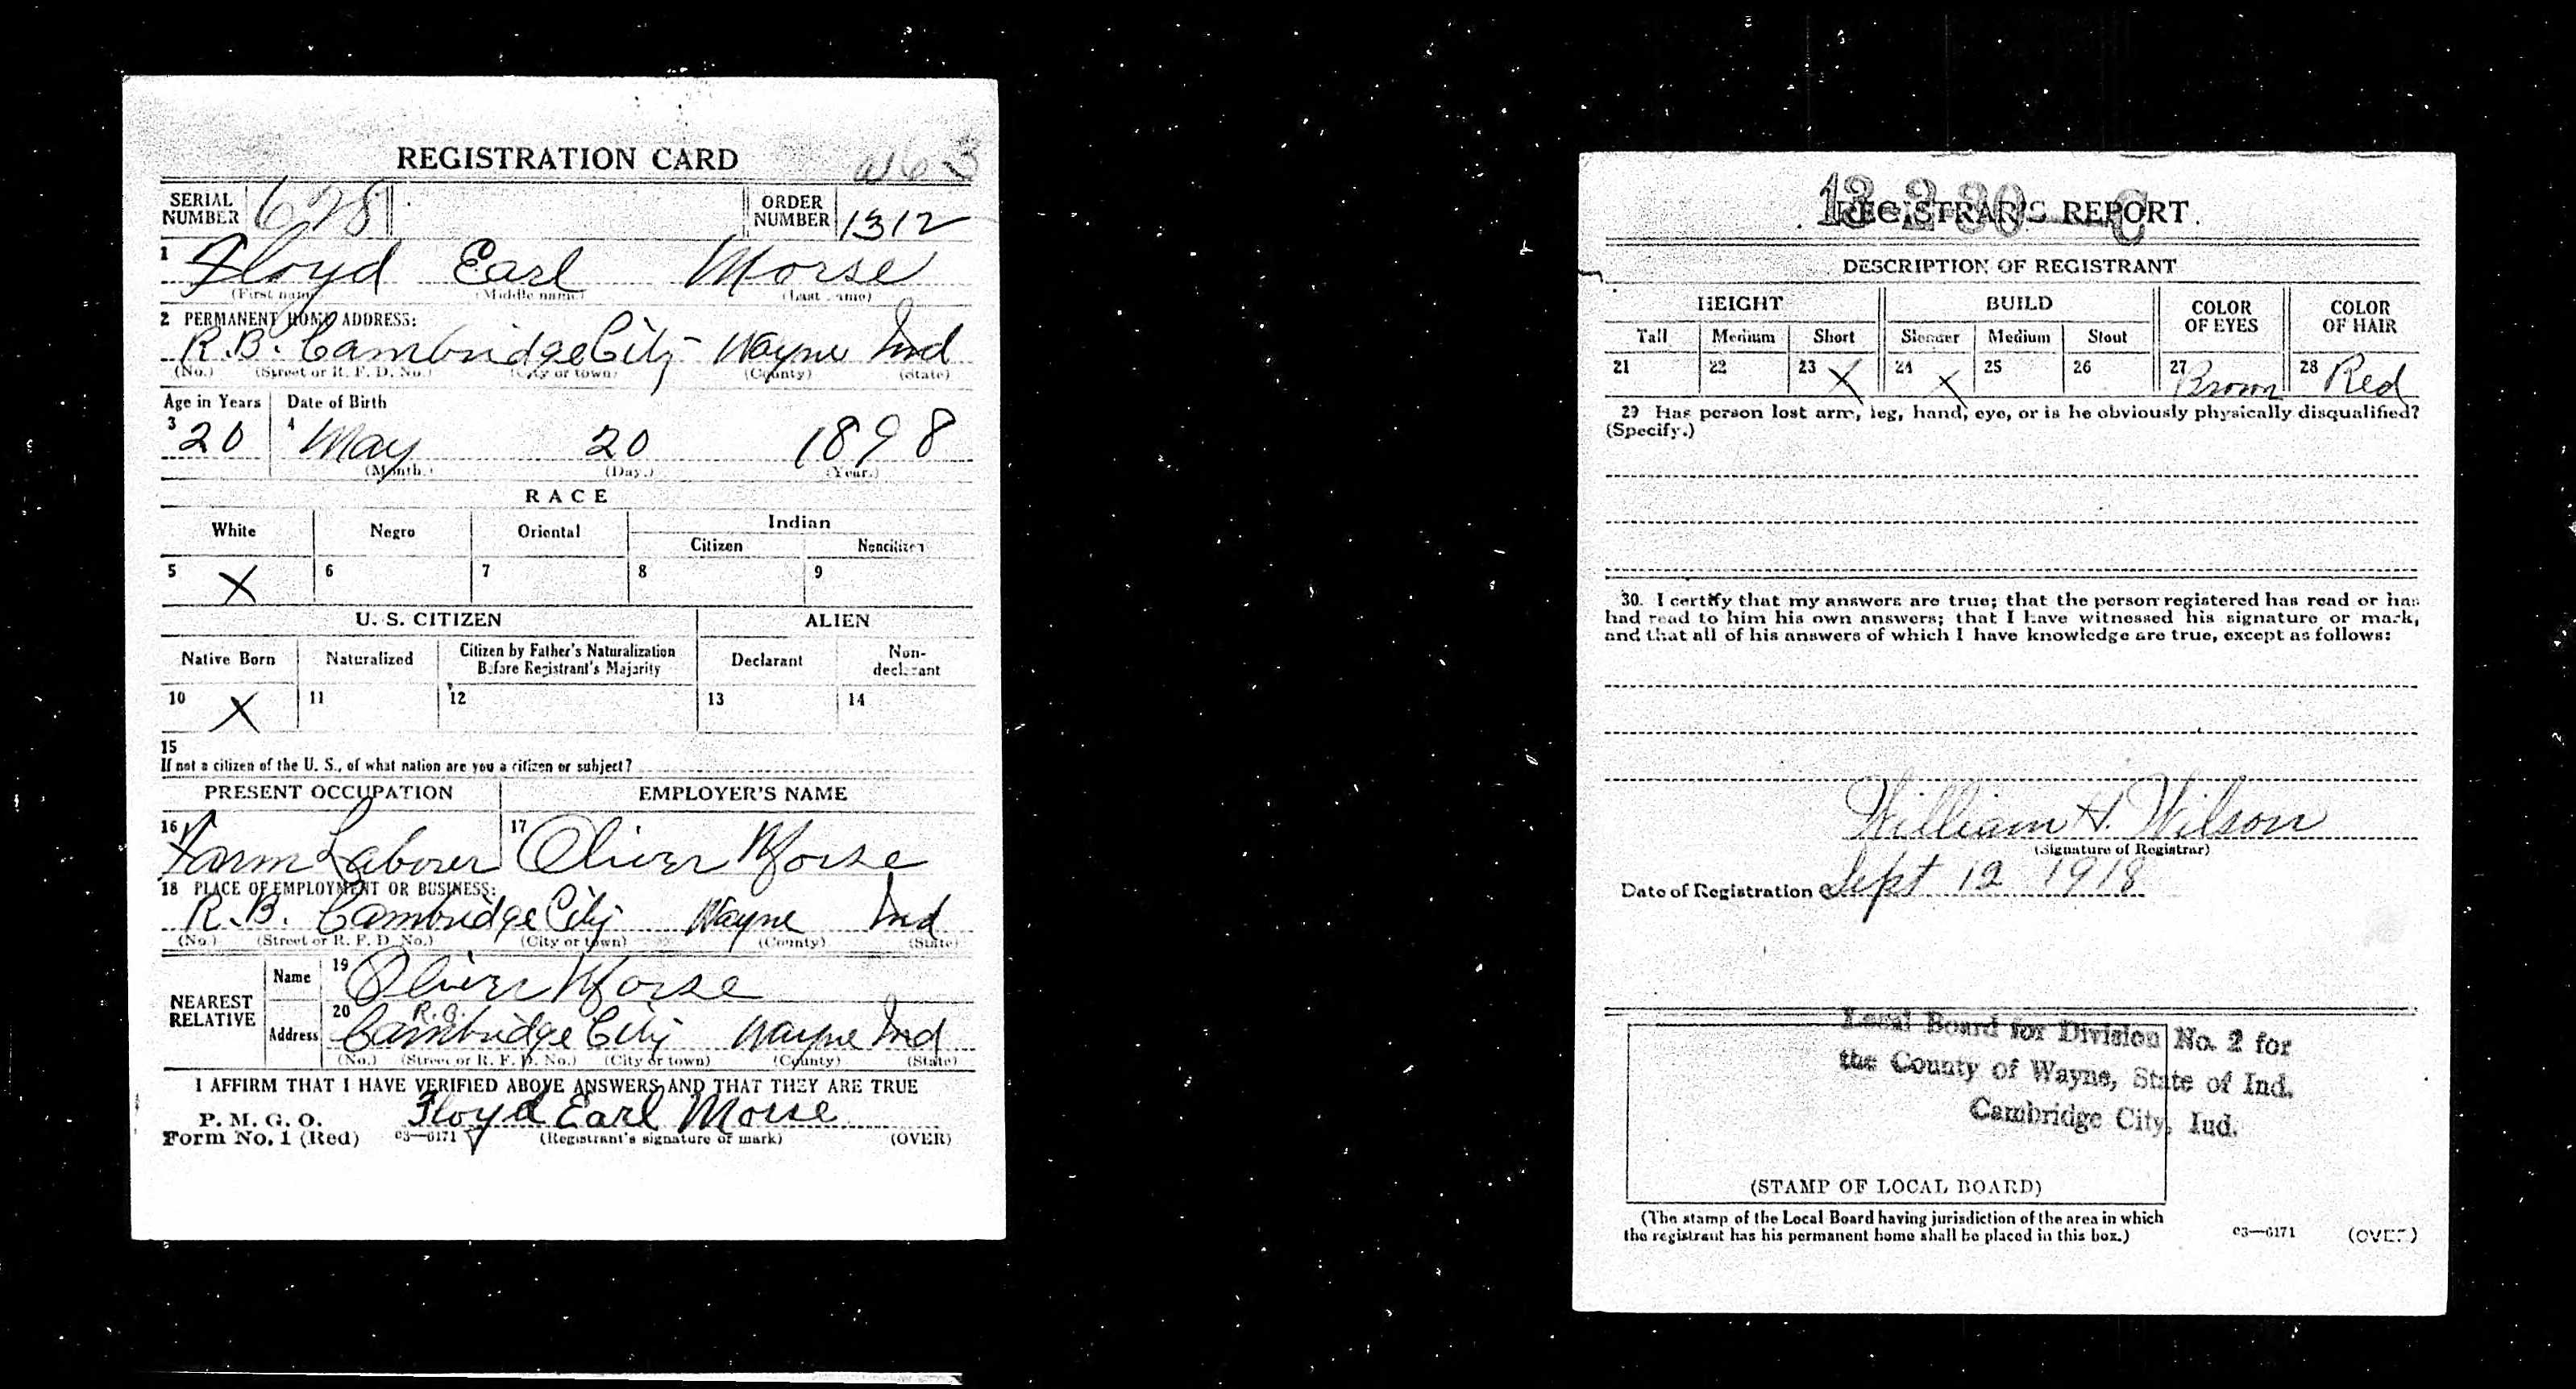 REGISTRATION CARD
SERIAL NUMBER 628 ORDER NUMBER 1312
1 Floyd Earl Morse
(First name) (Middle name) (Last name)
2 PERMANENT HOME ADDRESS:
R.B. Cambridge City Wayne Ind
(No.) (Street or R. F. D. No.) (City or town) (County) (State)
Age in Years Date of Birth
3 20 4 May 20 1898
(Month.) (Day.) (Year.)
RACE
White Negro Oriental Indian
Citizen Noncitizen
5 X 6 7 8 9
U. S. CITIZEN ALIEN
Native Born Naturalized Citizen by Father's Naturalization Before Registrant's Majority Declarant Non-declarant
10 X 11 12 13 14
15
If not a citizen of the U. S., of what nation are you a citizen or subject?
PRESENT OCCUPATION EMPLOYER'S NAME
16 Farm Laborer 17 Oliver Morse
18 PLACE OF EMPLOYMENT OR BUSINESS:
R.B. Cambridge City Wayne Ind
(No.) (Street or R. F. D. No.) (City or town) (County) (State)
NEAREST RELATIVE
Name 19 Oliver Morse
Address 20 Cambridge City Wayne Ind
(No.) (Street or R. F. D. No.) (City or town) (County) (State)
I AFFIRM THAT I HAVE VERIFIED ABOVE ANSWERS AND THAT THEY ARE TRUE
P. M. G. O.
Form No. 1 (Red) Floyd Earl Morse
c3—6171 (Registrant's signature or mark) (OVER)
REGISTRAR'S REPORT
DESCRIPTION OF REGISTRANT
HEIGHT BUILD COLOR OF EYES COLOR OF HAIR
Tall Medium Short Slender Medium Stout
21 22 23 X 24 X 25 26 27 Brown 28 Red
29 Has person lost arm, leg, hand, eye, or is he obviously physically disqualified?
(Specify.)
30. I certify that my answers are true; that the person registered has read or has
had read to him his own answers; that I have witnessed his signature or mark,
and that all of his answers of which I have knowledge are true, except as follows:
William H. Wilson
(Signature of Registrar)
Date of Registration Sept 12 1918
Local Board for Division No. 2 for
the County of Wayne, State of Ind.
Cambridge City, Ind.
(STAMP OF LOCAL BOARD)
(The stamp of the Local Board having jurisdiction of the area in which
the registrant has his permanent home shall be placed in this box.)
c3—6171 (OVER)